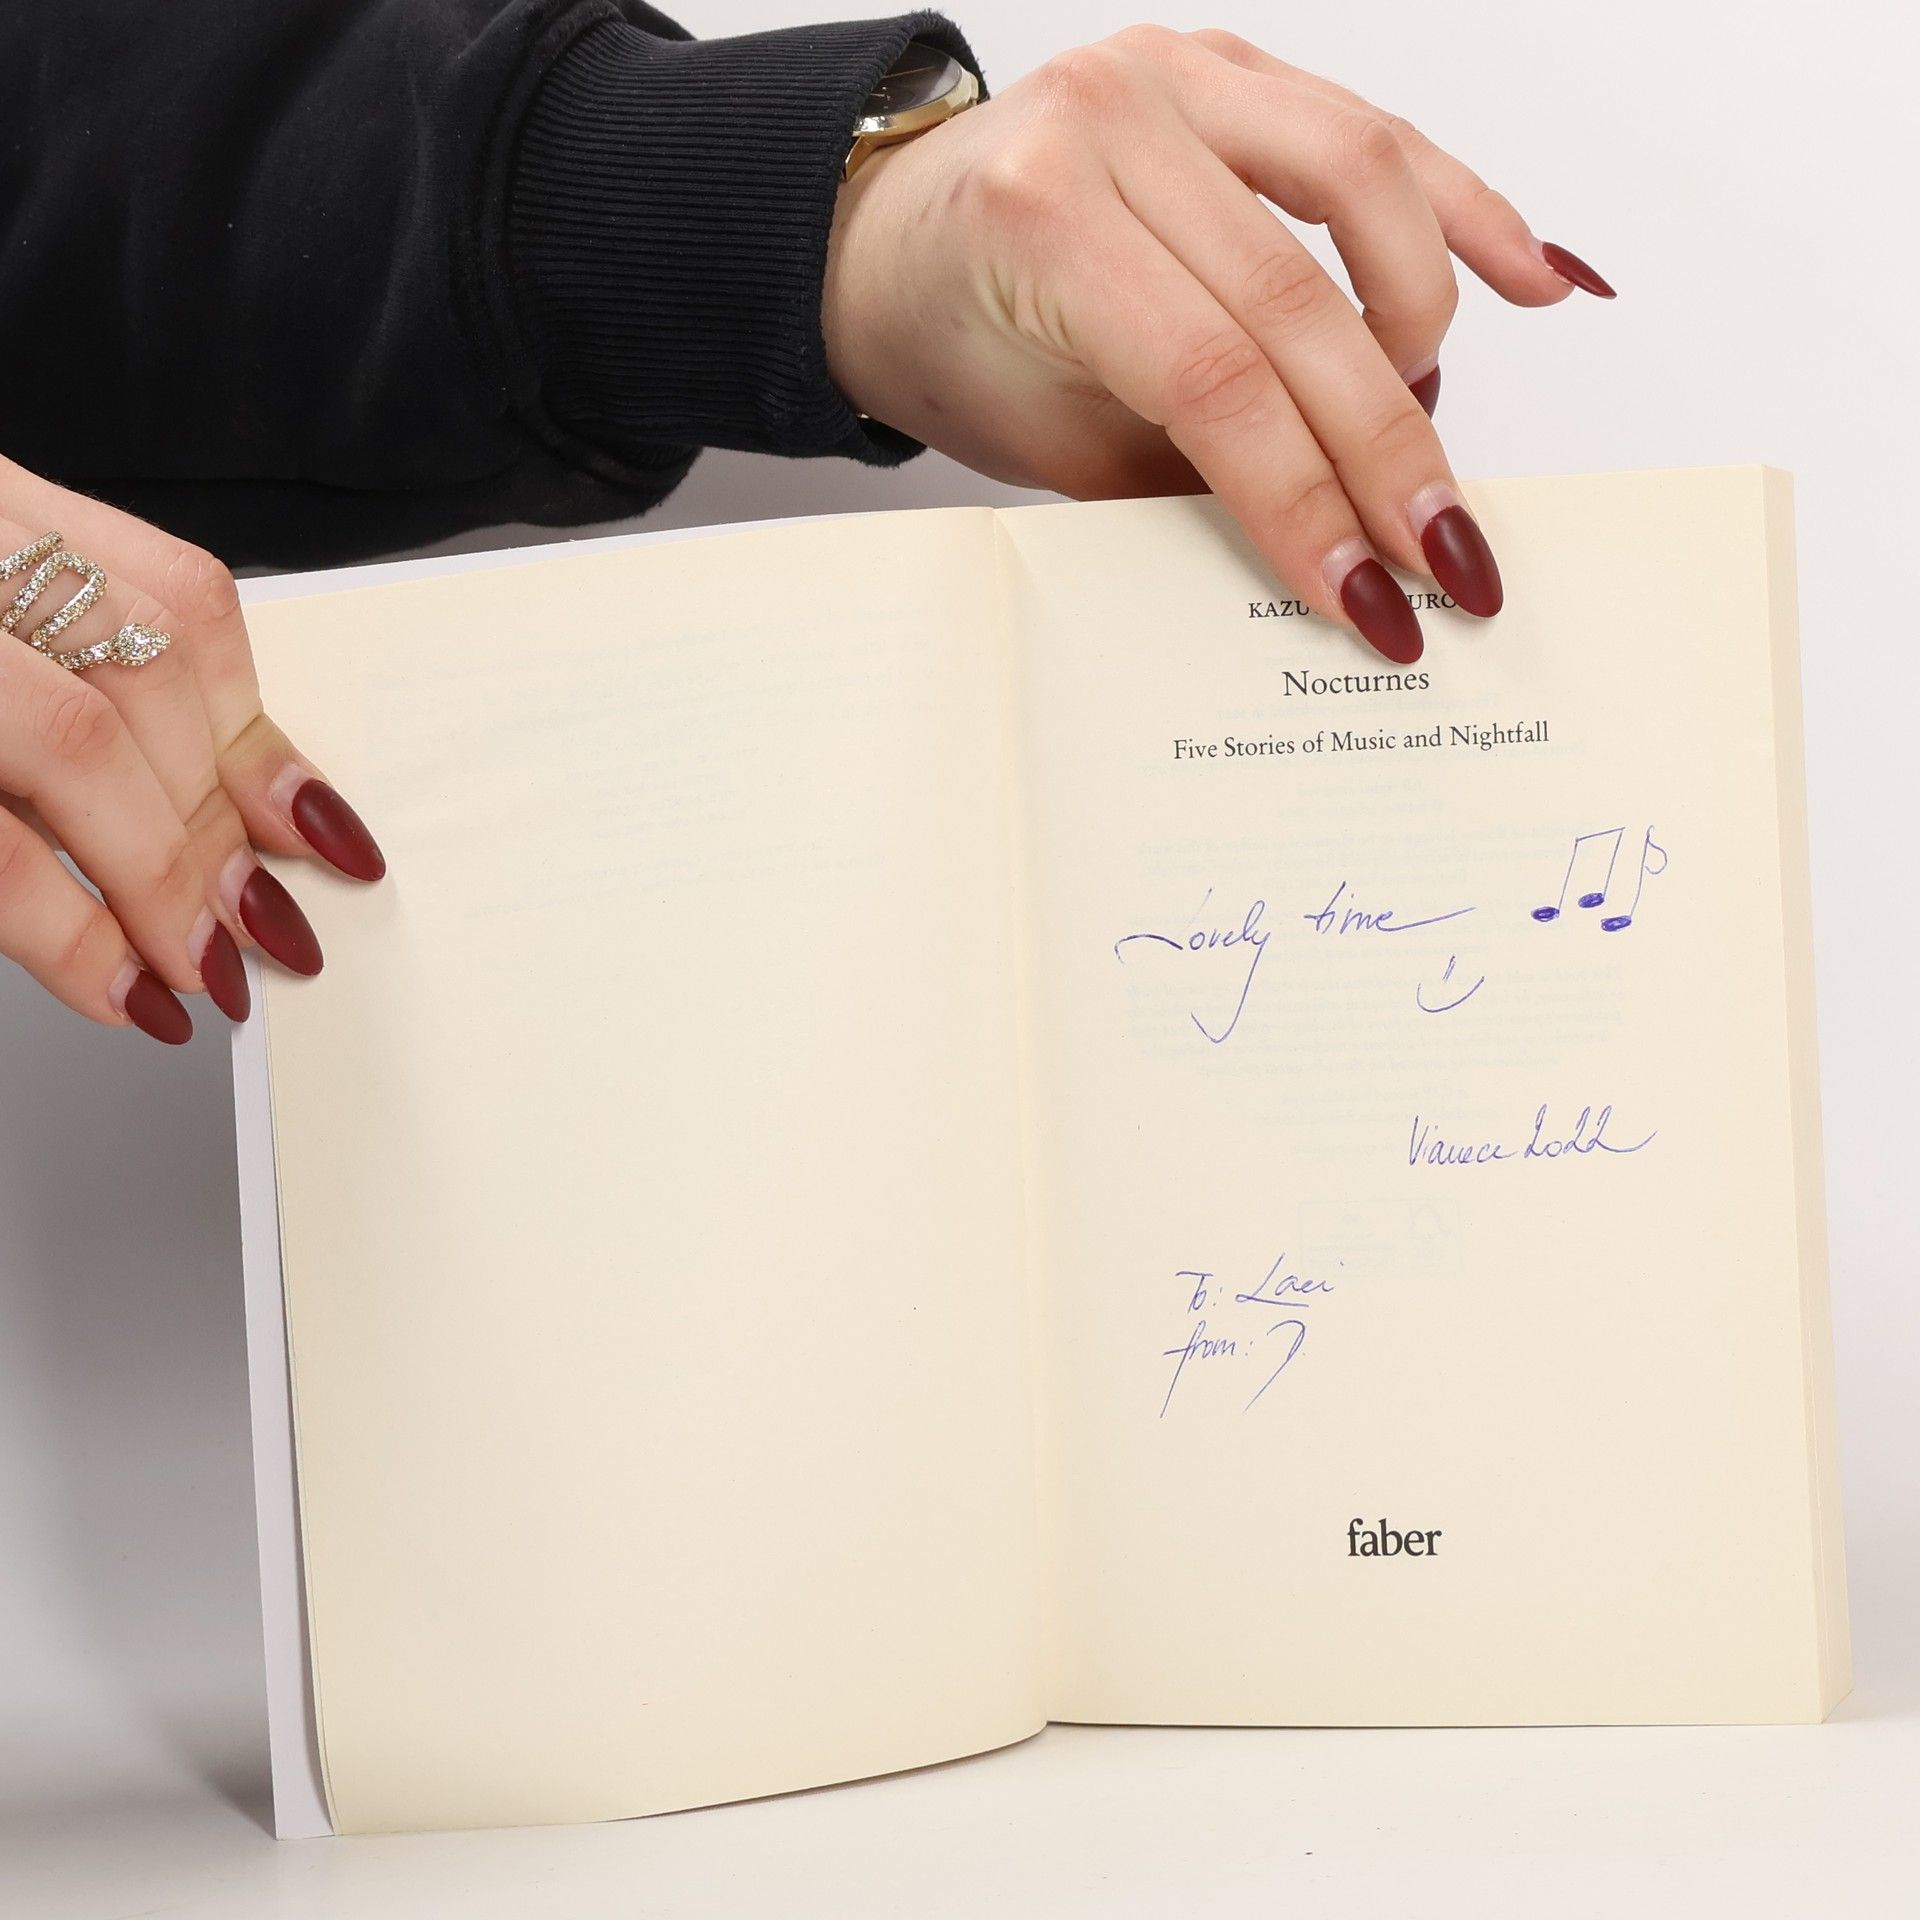 KAZU URO
Nocturnes
Five Stories of Music and Nightfall
Lovely time
Vianoce 2022
To: Laci
from: D.
faber